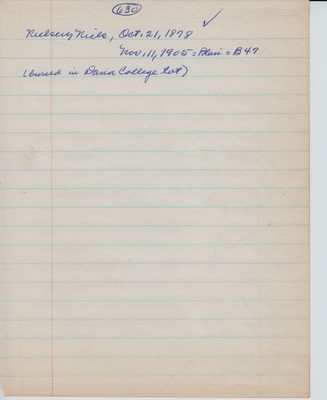 630
Nielsen, Niels, Oct. 21, 1878
Nov. 11, 1905 = Plain = B47
(buried in Dana College Lot)